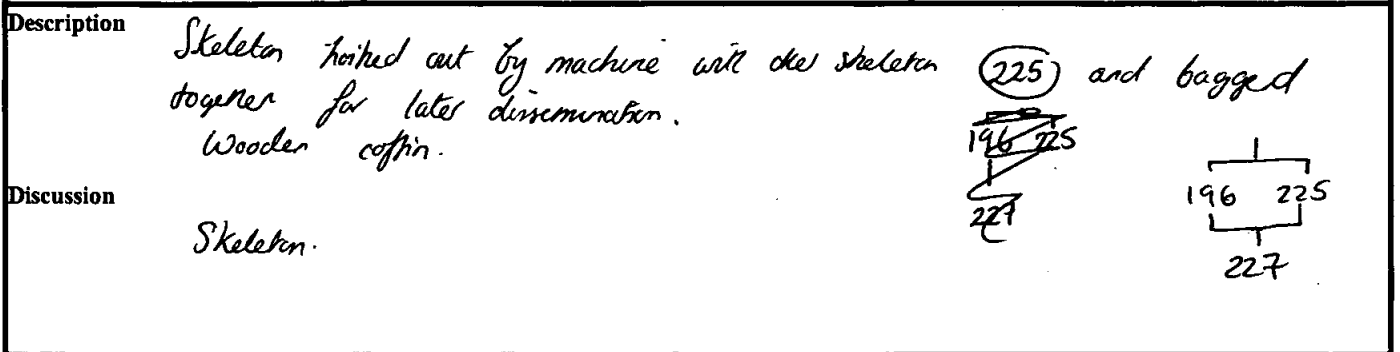 Description
Skeleton hoiked out by machine with other skeleton 225 and bagged
together for later dissemination.
Wooden coffin.
196 225
227
196 225
227
Discussion
Skeleton.